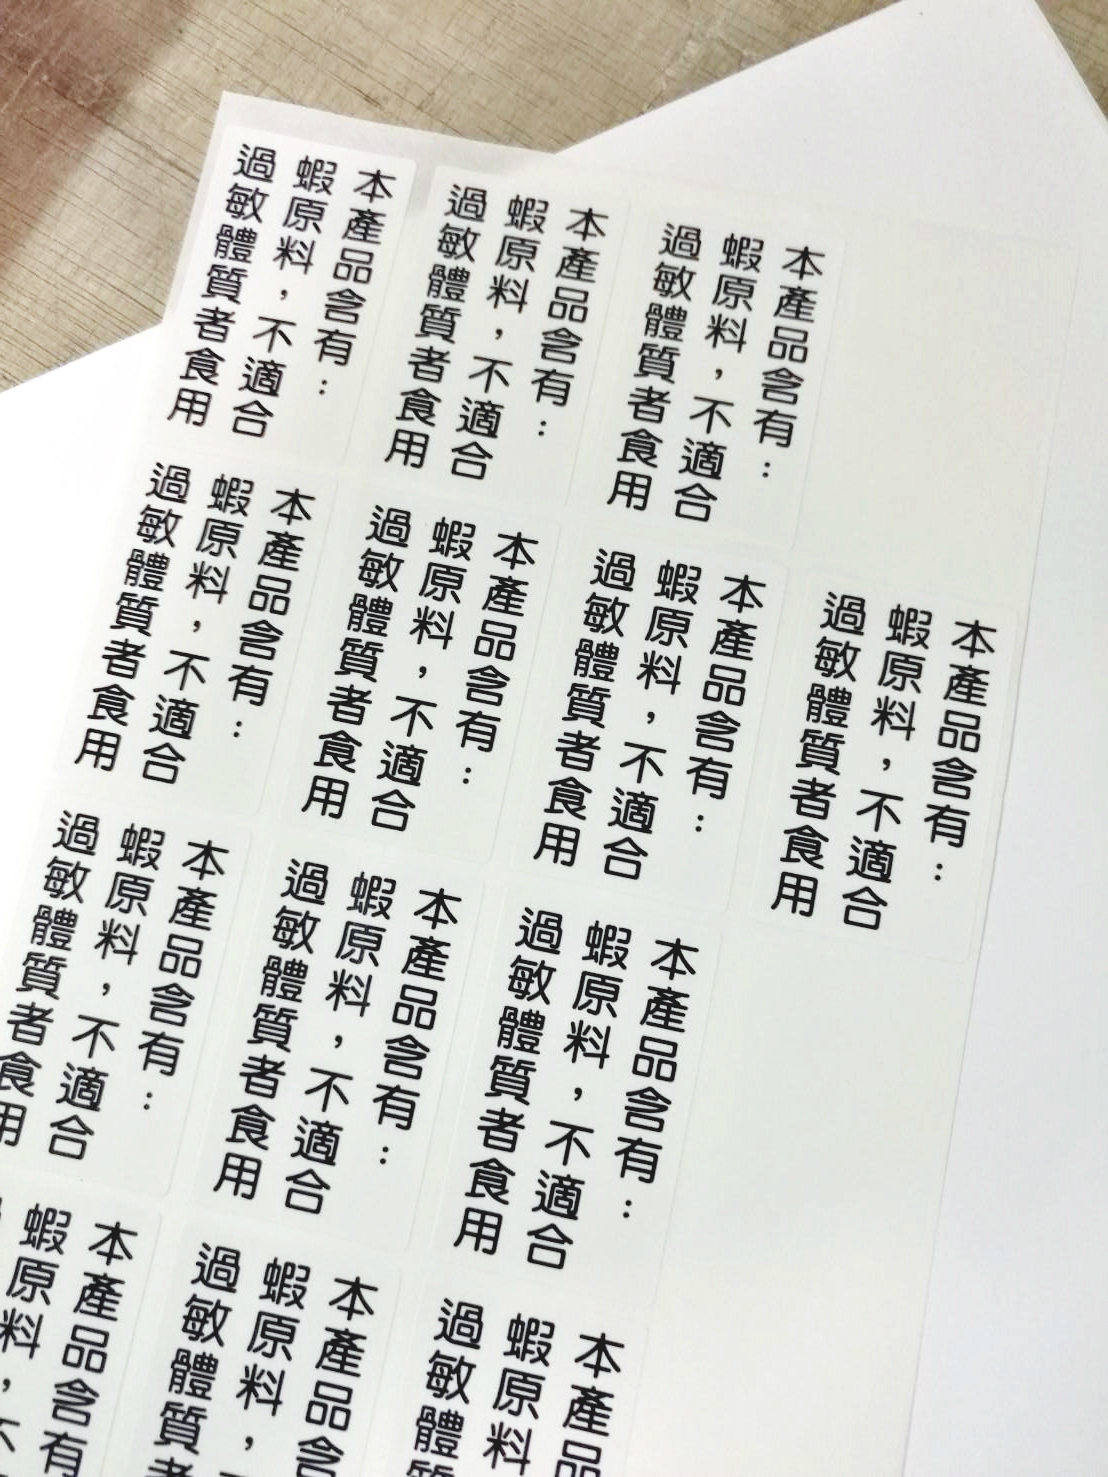 本產品含有：
蝦原料，不適合
過敏體質者食用
本產品含有：
蝦原料，不適合
過敏體質者食用
本產品含有：
蝦原料，不適合
過敏體質者食用
本產品含有：
蝦原料，不適合
過敏體質者食用
本產品含有：
蝦原料，不適合
過敏體質者食用
本產品含有：
蝦原料，不適合
過敏體質者食用
本產品含有：
蝦原料，不適合
過敏體質者食用
本產品含有：
蝦原料，不適合
過敏體質者食用
本產品含有：
蝦原料，不適合
過敏體質者食用
本產品含有：
蝦原料，不適合
過敏體質者食用
本產品含有
蝦原料，不
本產品含
蝦原料，
過敏體質者
本產品
蝦原料
過敏體質